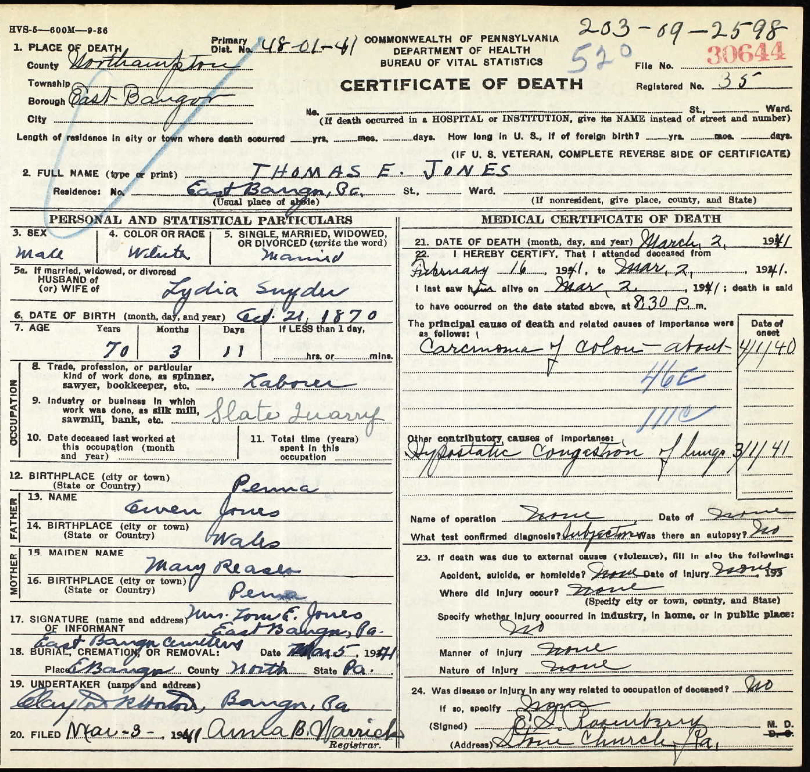 HVS-5—600M—9-36
203-09-2598
1. PLACE OF DEATH
County Northampton
Township
Borough East Bangor
City
Primary Dist. No. 48-01-41
COMMONWEALTH OF PENNSYLVANIA
DEPARTMENT OF HEALTH
BUREAU OF VITAL STATISTICS
520
File No. 30644
Registered No. 35
CERTIFICATE OF DEATH
No. St., Ward.
(If death occurred in a HOSPITAL or INSTITUTION, give its NAME instead of street and number)
Length of residence in city or town where death occurred yrs. mos. days. How long in U. S., if of foreign birth? yrs. mos. days.
(IF U. S. VETERAN, COMPLETE REVERSE SIDE OF CERTIFICATE)
2. FULL NAME (type or print) THOMAS E. JONES
Residence: No. East Bangor, Pa. St., Ward.
(Usual place of abode) (If nonresident, give place, county, and State)
PERSONAL AND STATISTICAL PARTICULARS
3. SEX
Male
4. COLOR OR RACE
White
5. SINGLE, MARRIED, WIDOWED, OR DIVORCED (write the word)
Married
5a. If married, widowed, or divorced
HUSBAND of
(or) WIFE of Lydia Snyder
6. DATE OF BIRTH (month, day, and year) 21, 1870
7. AGE Years Months Days If LESS than 1 day,
70 3 11 hrs. or mins.
OCCUPATION
8. Trade, profession, or particular kind of work done, as spinner, sawyer, bookkeeper, etc. Laborer
9. Industry or business in which work was done, as silk mill, sawmill, bank, etc. Slate Quarry
10. Date deceased last worked at this occupation (month and year)
11. Total time (years) spent in this occupation
12. BIRTHPLACE (city or town)
(State or Country) Penna
FATHER
13. NAME Owen Jones
14. BIRTHPLACE (city or town)
(State or Country) Wales
MOTHER
15. MAIDEN NAME Mary Reaser
16. BIRTHPLACE (city or town)
(State or Country) Penna
17. SIGNATURE (name and address) Mrs. Tom E. Jones
OF INFORMANT East Bangor, Pa.
East Bangor Cemetery
18. BURIAL, CREMATION, OR REMOVAL: Date Mar 5 1941
Place E Bangor County North State Pa.
19. UNDERTAKER (name and address)
Bangor, Pa
20. FILED Mar-3- 1941 Anna B. Warrick
Registrar.
MEDICAL CERTIFICATE OF DEATH
21. DATE OF DEATH (month, day, and year) March 2, 1941
22. I HEREBY CERTIFY, That I attended deceased from
February 16 1941, to Mar, 2, 1941.
I last saw him alive on Mar, 2 1941; death is said
to have occurred on the date stated above, at 8:30 P. m.
The principal cause of death and related causes of importance were as follows:
Date of onset
Carcinoma of colon - about 4/1/40
46E
111C
Other contributory causes of importance:
Hypostatic congestion of lungs 3/1/41
Name of operation none Date of none
What test confirmed diagnosis? Was there an autopsy? No
23. If death was due to external causes (violence), fill in also the following:
Accident, suicide, or homicide? none Date of injury none 193
Where did injury occur? none
(Specify city or town, county, and State)
Specify whether injury occurred in industry, in home, or in public place:
No
Manner of injury none
Nature of injury none
24. Was disease or injury in any way related to occupation of deceased? No
If so, specify
(Signed) Rosenberry M. D.
D. O.
(Address) Stone Church, Pa.